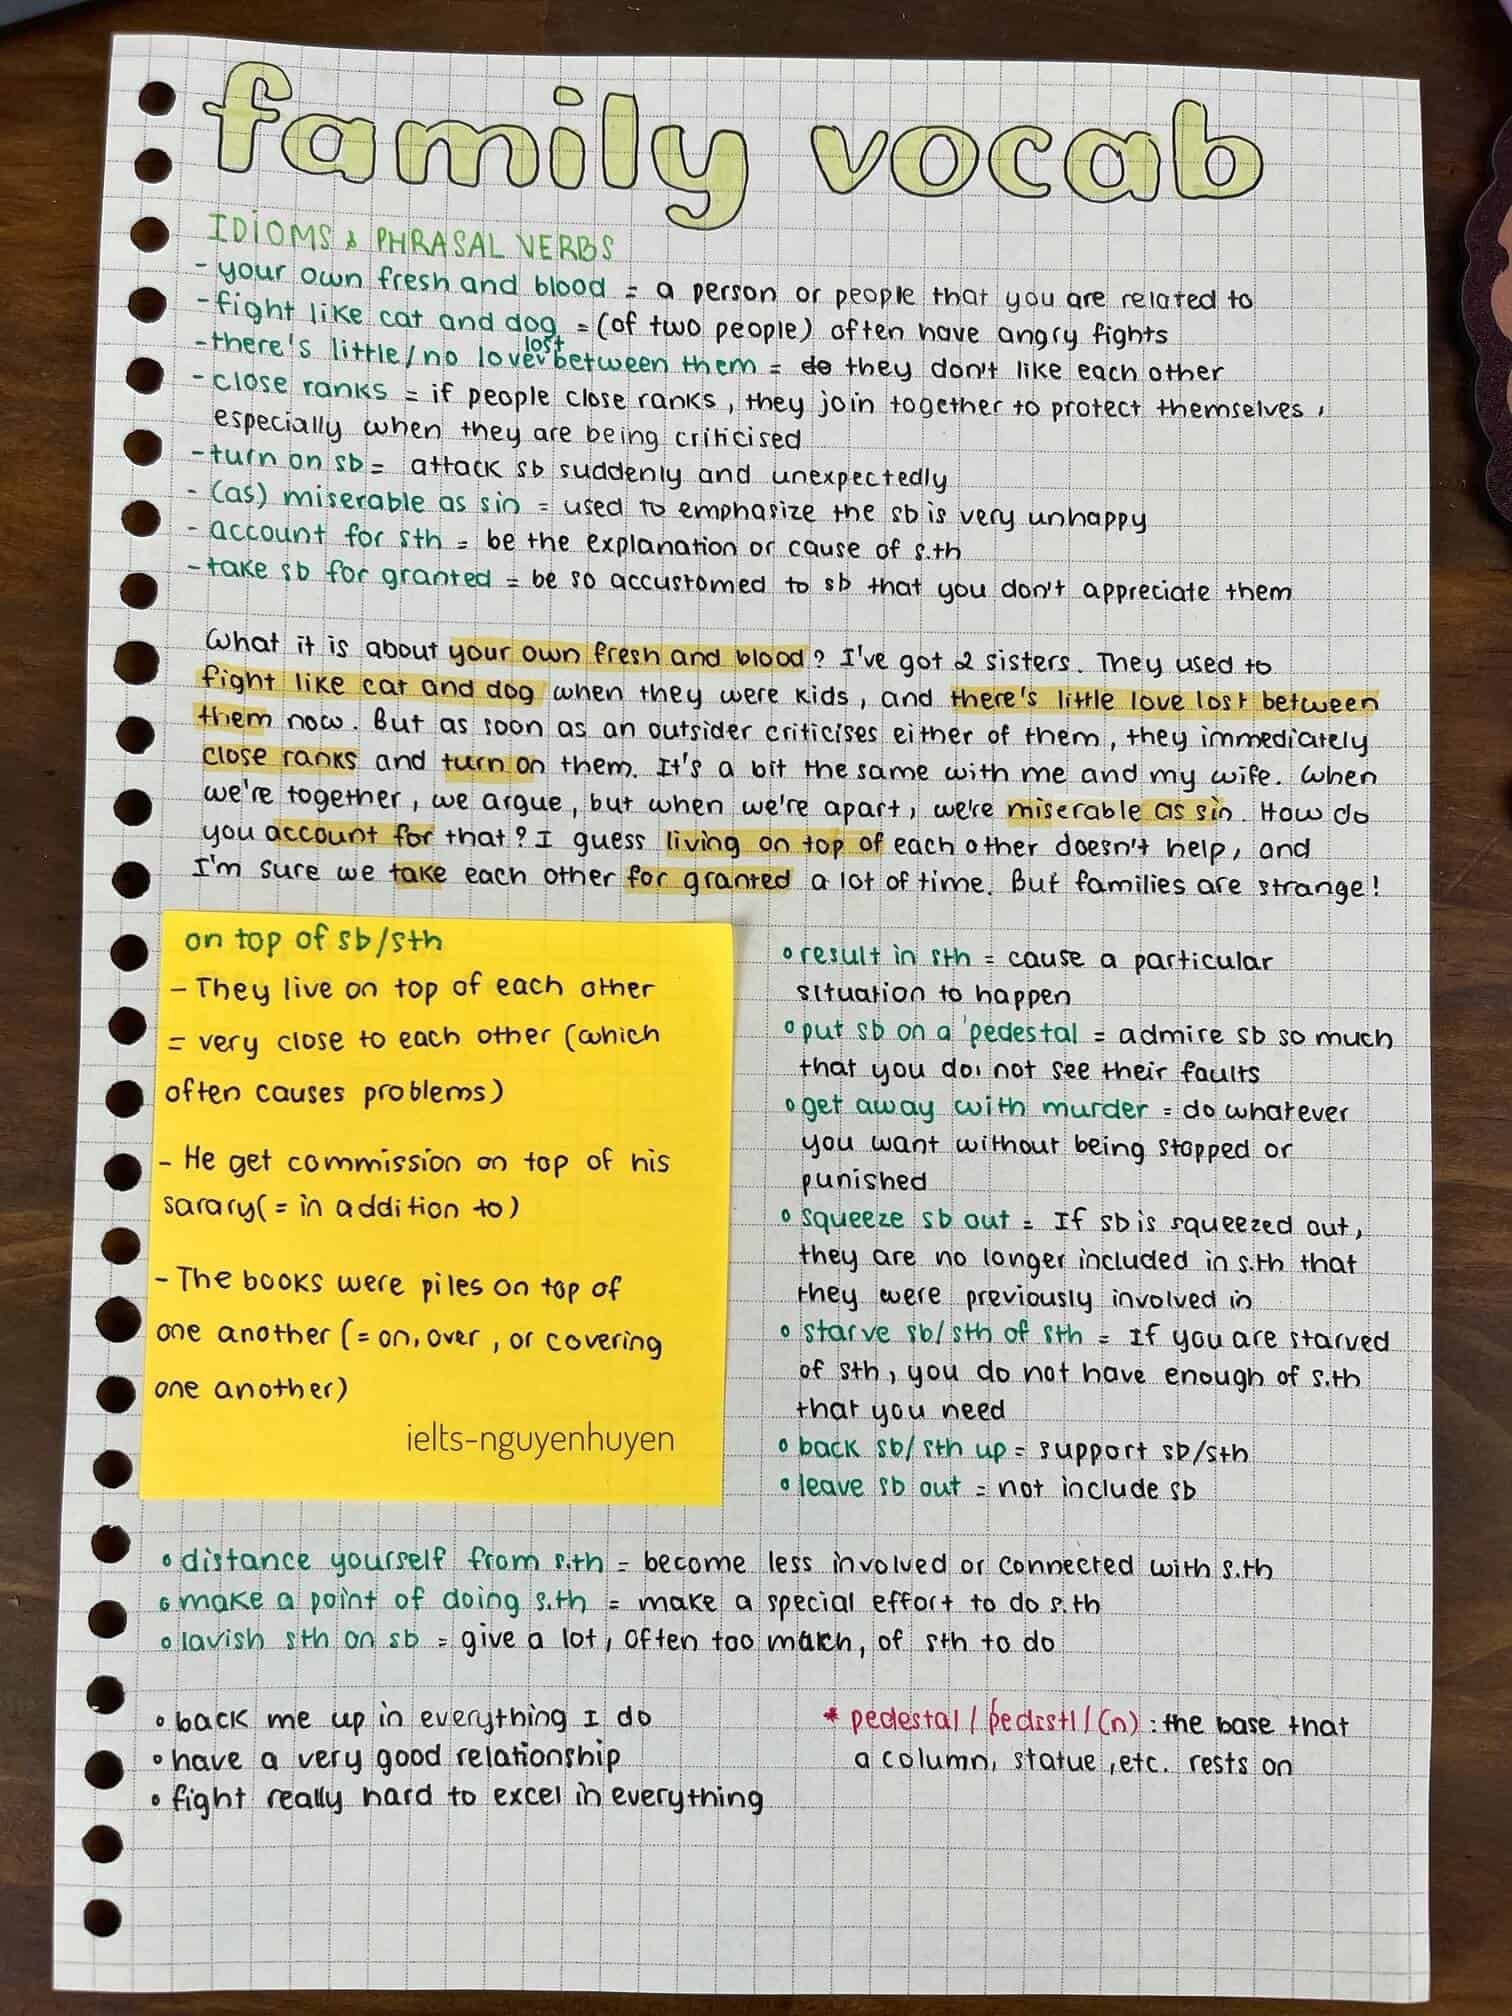 family vocab
IDIOMS & PHRASAL VERBS
- your own fresh and blood = a person or people that you are related to
- fight like cat and dog = (of two people) often have angry fights
- there's little/no love lost between them = do they don't like each other
- close ranks = if people close ranks, they join together to protect themselves,
especially when they are being criticised
- turn on sb = attack sb suddenly and unexpectedly
- (as) miserable as sin = used to emphasize the sb is very unhappy
- account for sth = be the explanation or cause of s.th
- take sb for granted = be so accustomed to sb that you don't appreciate them
What it is about your own fresh and blood? I've got 2 sisters. They used to
fight like cat and dog when they were kids, and there's little love lost between
them now. But as soon as an outsider criticises either of them, they immediately
close ranks and turn on them. It's a bit the same with me and my wife. When
we're together, we argue, but when we're apart, we're miserable as sin. How do
you account for that? I guess living on top of each other doesn't help, and
I'm sure we take each other for granted a lot of time. But families are strange!
on top of sb/sth
- They live on top of each other
= very close to each other (which
often causes problems)
- He get commission on top of his
sarary (= in addition to)
- The books were piles on top of
one another (= on, over, or covering
one another)
ielts-nguyenhuyen
• result in sth = cause a particular
situation to happen
• put sb on a pedestal = admire sb so much
that you do not see their faults
• get away with murder = do whatever
you want without being stopped or
punished
• squeeze sb out = If sb is squeezed out,
they are no longer included in s.th that
they were previously involved in
• starve sb/sth of sth = If you are starved
of sth, you do not have enough of s.th
that you need
• back sb/sth up = support sb/sth
• leave sb out = not include sb
• distance yourself from s.th = become less involved or connected with s.th
• make a point of doing s.th = make a special effort to do s.th
• lavish sth on sb = give a lot, often too much, of sth to do
• back me up in everything I do
• have a very good relationship
• fight really hard to excel in everything
* pedestal /pedɪstl/ (n) : the base that
a column, statue, etc. rests on